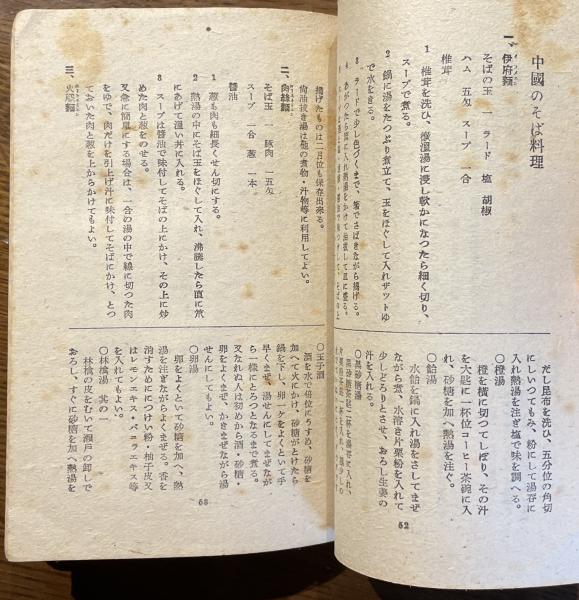 中國のそば料理
一、伊府麵
そばの玉 一 ラード 塩 胡椒
ハム 五匁 スープ 一合
椎茸
1 椎茸を洗ひ、微溫湯に浸し軟かになつたら細く切り、
スープで煮る。
2 鍋に湯をたつぷり煮立て、玉をほぐして入れザットゆ
で水をきる。
3 ラードで少し色づくまで、箸でさばきながら揚げる。
4 あがつたら皿に入れ熱湯をかけて油拔して皿に盛る。
だし昆布を洗ひ、五分位の角切
にしいつてもみ、粉にして湯呑に
入れ熱湯を注ぎ塩で味を調へる。
〇橙湯
橙を橫に切つてしぼり、その汁
を大匙に一杯位コーヒー茶碗に入
れ、砂糖を加へ熱湯を注ぐ。
〇飴湯
水飴を鍋に入れ湯をさしてまぜ
ながら煮、水溶き片栗粉を入れて
少しどろりとさせ、おろし生姜の
汁を入れる。
〇黑砂糖湯
黑砂糖茶匙二杯を湯呑に入れ、
52
揚げたものは二月位も保存出來る。
尙油拔き湯は他の煮物・汁物等に利用してよい。
二、肉絲麵
そば玉 豚肉 一五匁
スープ 一合 葱 一本
醬油
1 葱も肉も細長くせん切にする。
2 熱湯の中にそば玉をほぐして入れ、沸騰したら直に笊
にあげて溫い丼に入れる。
3 スープは醬油で味付してそばの上にかけ、その上に炒
めた肉と葱をのせる。
又急に簡單にする場合は、一合の湯の中で線に切つた肉
をゆで、肉だけを引上げ汁に味付してそばにかけ、とつ
ておいた肉と葱を上からかけてもよい。
三、火腿麵
〇玉子酒
酒を水で倍位にうすめ、砂糖を
加へて火にかけ、砂糖がとけたら
鍋を下し、卵一ケをよくといて手
早くまぜ、湯せんにしてまぜなが
ら一樣にとろつとなるまで煮る。
又なれぬ人は初めから酒・砂糖・
卵をよくまぜ、かきまぜながら湯
せんにしてもよい。
〇卵湯
卵をよくといて砂糖を加へ、熱
湯を注ぎながらよくまぜる。香を
消すためにつけい粉・柚子皮又
はレモンエキス・バニラエキス等
を入れてもよい。
〇林檎湯 其の一
林檎の皮をむいて瀨戶の卸しで
おろし、すぐに砂糖を加へ熱湯を
53